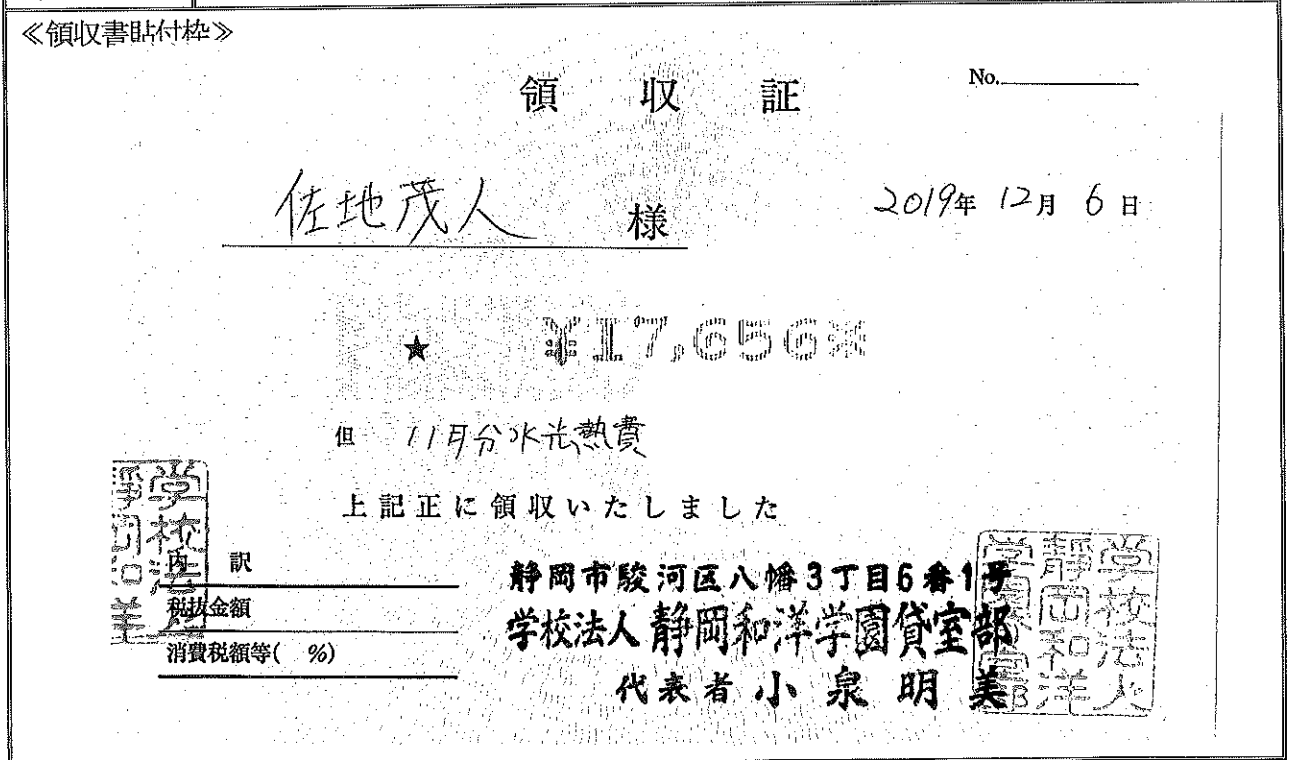 ≪領収書貼付枠≫
領 収 証
No.
佐地茂人 様
2019年 12月 6日
★ ¥17,656※
但 11月分水光熱費
上記正に領収いたしました
内 訳
税抜金額
消費税額等( %)
静岡市駿河区八幡3丁目6番1号
学校法人静岡和洋学園貸室部
代表者 小泉明美
学校法人
静岡和洋
学園貸室部